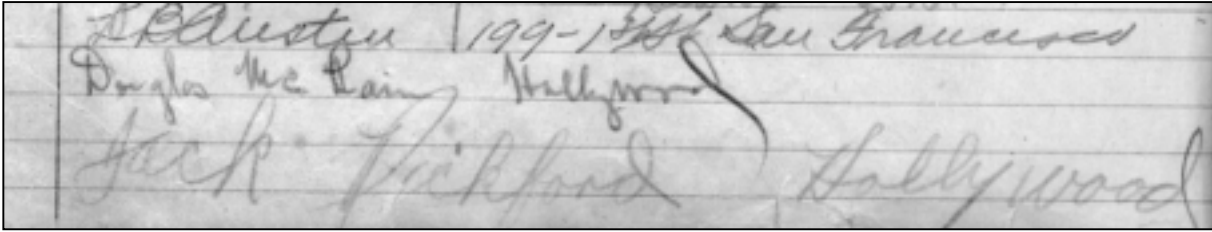 L B Austin 199-1st St San Francisco
Douglas Mc Lain Hollywood
Jack Pickford Hollywood